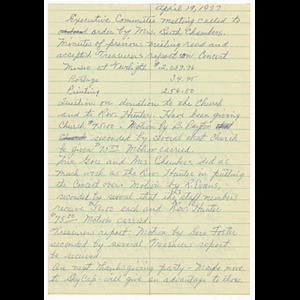 April 19, 1977
Executive Committee meeting called to
order by Mrs. Ruth Chambers.
Minutes of previous meeting read and
accepted Treasurers report on Concert
Music at Twilight $2,037.76
Postage 34.95
Printing 256.00
Question on donation to the Church
and to Rev. Hunter. Have been giving
Church $75.00. Motion by B. Payton
seconded by several that Church
be given $75.00 Motion carried.
Mrs. Gore and Mrs. Chambers did as
much work as the Rev. Hunter in putting
the Concert over. Motion by R. Evans,
seconded by several that staff members
receive each and Rev. Hunter
$75.00 Motion carried
Treasurers report: Motion by Foster
seconded by several Treasurers report
be received.
Our next Thanksgiving party - move
to SkyCap - will give an advantage to those